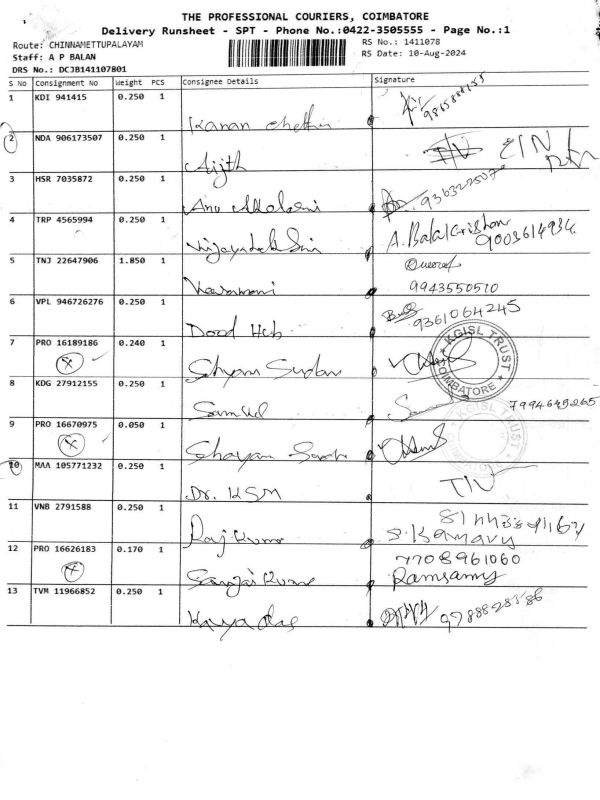 THE PROFESSIONAL COURIERS, COIMBATORE
Delivery Runsheet - SPT - Phone No.:0422-3505555 - Page No.:1
Route: CHINNAMETTUPALAYAM
RS No.: 1411078
Staff: A P BALAN
RS Date: 10-Aug-2024
DRS No.: DCJB141107801
S No Consignment No Weight PCS Consignee Details Signature
1 KDI 941415 0.250 1
2 NDA 906173507 0.250 1 Aijth TIN
3 HSR 7035872 0.250 1 Anu
4 TRP 4565994 0.250 1 A. Balakrishnan
9003614934
5 TNJ 22647906 1.850 1
9943550510
6 VPL 946726276 0.250 1 Dood Hub 9361064245
7 PRO 16189186 0.240 1 Shyam Sundar
KGISL TRUST COIMBATORE
8 KDG 27912155 0.250 1 Samuel 7994649265
9 PRO 16670975 0.050 1 Shayam
KGISL TRUST COIMBATORE
10 MAA 105771232 0.250 1 Dr. KSM TIN
11 VNB 2791588 0.250 1 Raj Kumar
12 PRO 16626183 0.170 1 Sanjai Kumar 7708961060
Ramsamy
13 TVM 11966852 0.250 1